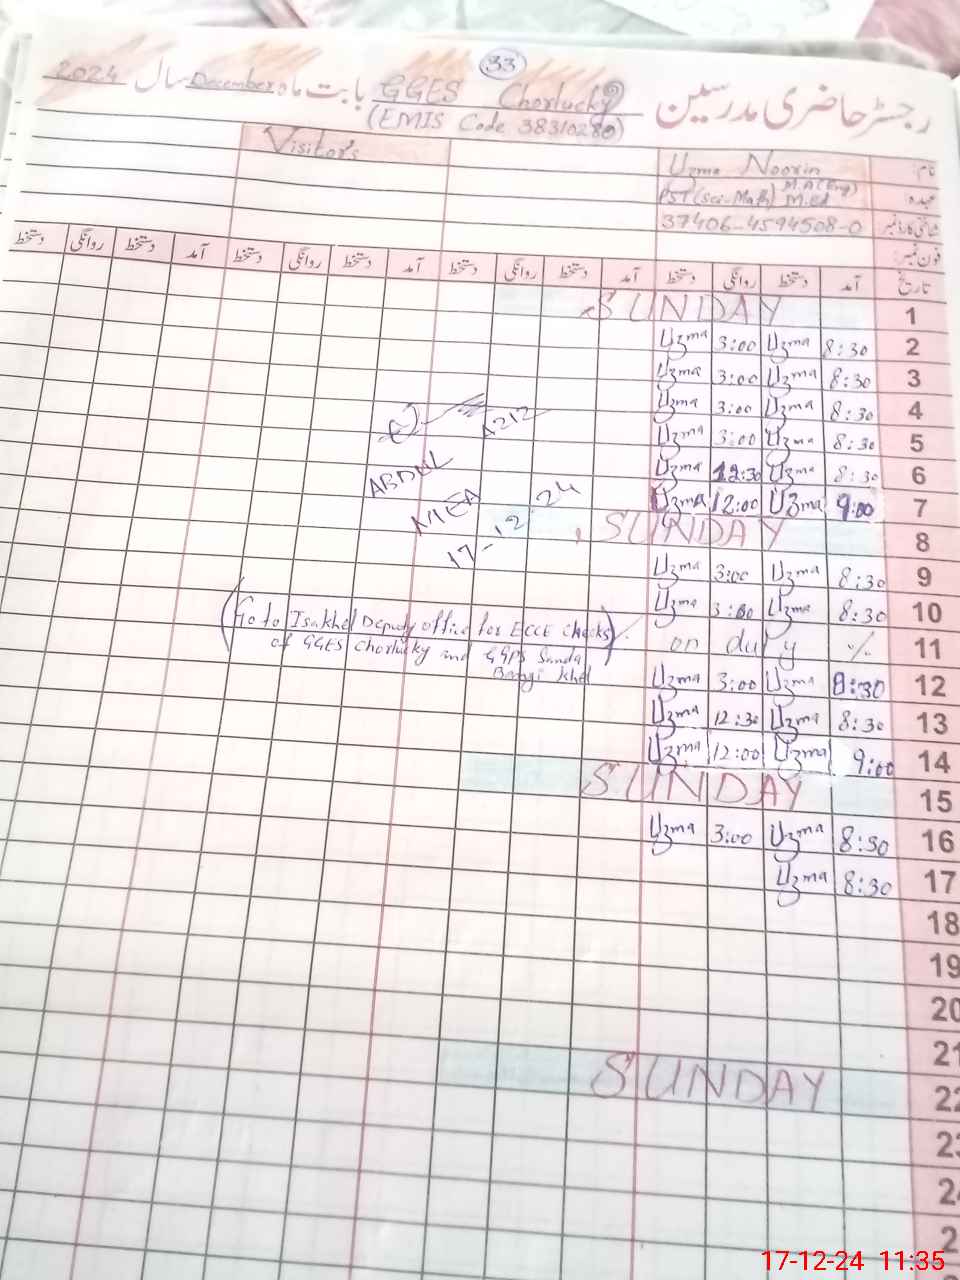 33
رجسٹر حاضری مدرسین GGES Chorlucky بابت ماه December سال 2024
(EMIS Code 38310280)
Visitors
نام: Uzma Noorin
عہدہ: PST (Sci-Math) M.A (Eng) M.Ed
شناختی کارڈ نمبر 37406-4594508-0
فون نمبر:
تاریخ آمد دستخط روانگی دستخط آمد دستخط روانگی دستخط آمد دستخط روانگی دستخط آمد دستخط روانگی دستخط
1 SUNDAY
2 8:30 Uzma 3:00 Uzma
3 8:30 Uzma 3:00 Uzma
4 8:30 Uzma 3:00 Uzma
5 8:30 Uzma 3:00 Uzma
6 8:30 Uzma 12:30 Uzma
7 9:00 Uzma 12:00 Uzma
8 SUNDAY
9 8:30 Uzma 3:00 Uzma
10 8:30 Uzma 3:00 Uzma
11 % on duty
12 8:30 Uzma 3:00 Uzma
13 8:30 Uzma 12:30 Uzma
14 9:00 Uzma 12:00 Uzma
15 SUNDAY
16 8:30 Uzma 3:00 Uzma
17 8:30 Uzma
18
19
20
21
22 SUNDAY
ABDUL
MEA
17-12-24
(Go to Isakhel Deputy office for ECCE checks)
of GGES Chorlucky and GGPS Sanda
Bangi Khel
17-12-24 11:35